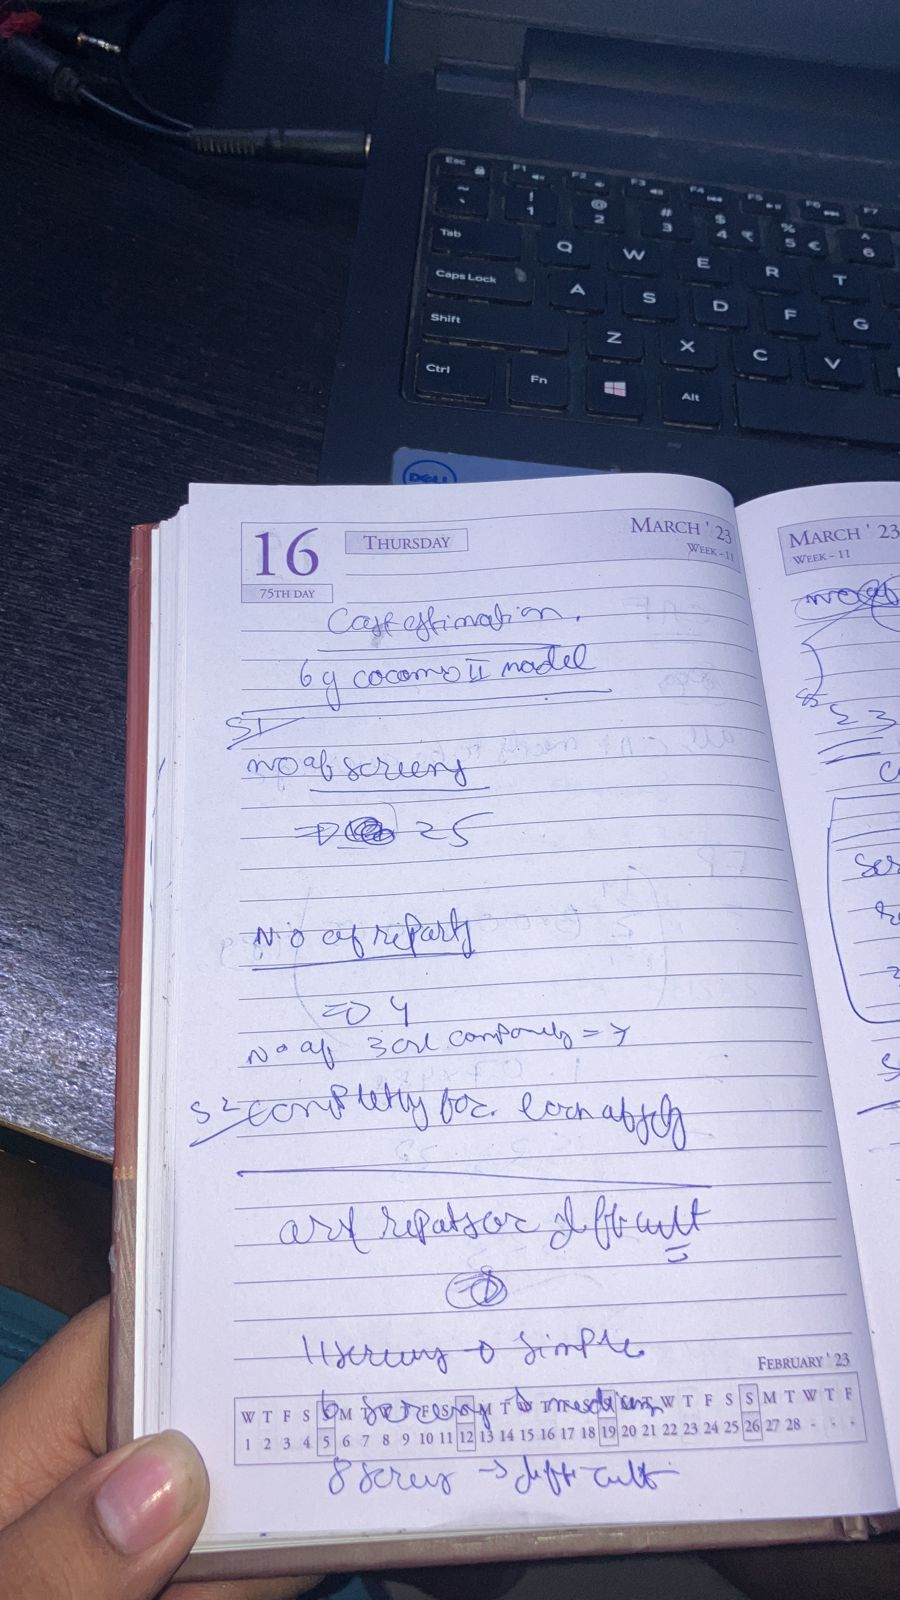 Esc F1 F2 F3 F4 F5 F6 F7
~ ` ! 1 @ 2 # 3 $ 4 ₹ % 5 € ^ 6
Tab Q W E R T
Caps Lock A S D F G
Shift Z X C V
Ctrl Fn Alt
DELL
16 THURSDAY MARCH ' 23
WEEK - 11
75TH DAY
Cost estimation.
by cocomo II model
S1
no of screens
=> 25
No of reports
=> 4
No of 3GL components =
S2 complexity for each
all reports are difficult
11 screens → simple
6 screens → medium
8 screens → difficult
FEBRUARY ' 23
W T F S S M T W T F S S M T W T F S S M T W T F S S M T W T F
1 2 3 4 5 6 7 8 9 10 11 12 13 14 15 16 17 18 19 20 21 22 23 24 25 26 27 28 - - -
MARCH ' 23
WEEK - 11
S3